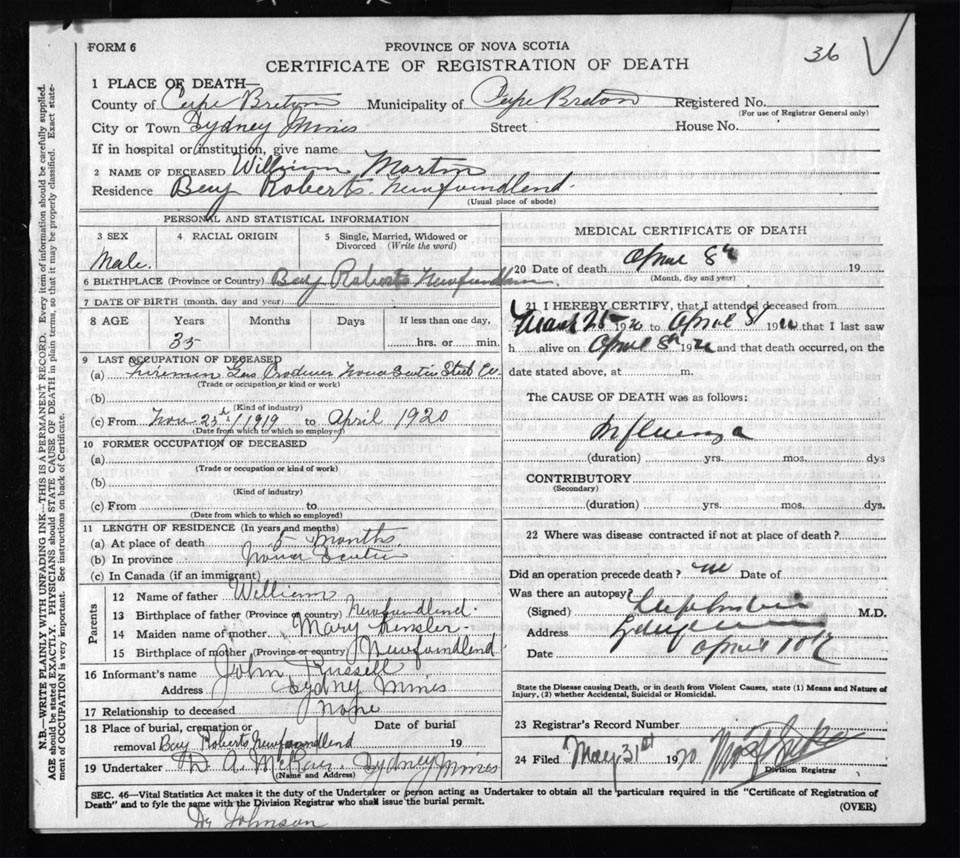 FORM 6
36 V
PROVINCE OF NOVA SCOTIA
CERTIFICATE OF REGISTRATION OF DEATH
N.B.—WRITE PLAINLY WITH UNFADING INK—THIS IS A PERMANENT RECORD. Every item of information should be carefully supplied.
AGE should be stated EXACTLY. PHYSICIANS should STATE CAUSE OF DEATH in plain terms, so that it may be properly classified. Exact state-
ment of OCCUPATION is very important. See instructions on back of Certificate.
1 PLACE OF DEATH—
County of Cape Breton Municipality of Cape Breton Registered No.
(For use of Registrar General only)
City or Town Sydney Mines Street House No.
If in hospital or institution, give name
2 NAME OF DECEASED William Martin
Residence Bay Roberts. Newfoundland.
(Usual place of abode)
PERSONAL AND STATISTICAL INFORMATION
3 SEX 4 RACIAL ORIGIN 5 Single, Married, Widowed or
Divorced (Write the word)
Male.
6 BIRTHPLACE (Province or Country) Bay Roberts Newfoundland
7 DATE OF BIRTH (month, day and year)
8 AGE Years Months Days If less than one day,
35 hrs. or min.
9 LAST OCCUPATION OF DECEASED
(a) Fireman Gas Producer Nova Scotia Steel Co.
(Trade or occupation or kind of work)
(b)
(Kind of industry)
(c) From Nov 25 1919 to April 1920
(Date from which to which so employed)
10 FORMER OCCUPATION OF DECEASED
(a)
(Trade or occupation or kind of work)
(b)
(Kind of industry)
(c) From to
(Date from which to which so employed)
11 LENGTH OF RESIDENCE (In years and months)
(a) At place of death 5 months
(b) In province Nova Scotia
(c) In Canada (if an immigrant)
Parents
12 Name of father William
13 Birthplace of father (Province or country) Newfoundland.
14 Maiden name of mother Mary
15 Birthplace of mother (Province or country) Newfoundland
16 Informant's name John Russell
Address Sydney Mines
17 Relationship to deceased none
18 Place of burial, cremation or Date of burial
removal Bay Roberts Newfoundland 19
19 Undertaker D. A. McRae. Sydney Mines
(Name and Address)
MEDICAL CERTIFICATE OF DEATH
20 Date of death April 8th 19
(Month, day and year)
21 I HEREBY CERTIFY, that I attended deceased from
March 25 1920 to April 8 1920 that I last saw
h alive on April 8th 1920 and that death occurred, on the
date stated above, at m.
The CAUSE OF DEATH was as follows:
Influenza
(duration) yrs. mos. dys
CONTRIBUTORY
(Secondary)
(duration) yrs. mos. dys.
22 Where was disease contracted if not at place of death?
Did an operation precede death? no Date of
Was there an autopsy?
(Signed) M.D.
Address
Date April 10
State the Disease causing Death, or in death from Violent Causes, state (1) Means and Nature of
Injury, (2) whether Accidental, Suicidal or Homicidal.
23 Registrar's Record Number
24 Filed May 31st 1920
Division Registrar
SEC. 46—Vital Statistics Act makes it the duty of the Undertaker or person acting as Undertaker to obtain all the particulars required in the "Certificate of Registration of
Death" and to fyle the same with the Division Registrar who shall issue the burial permit. (OVER)
Dr Johnson